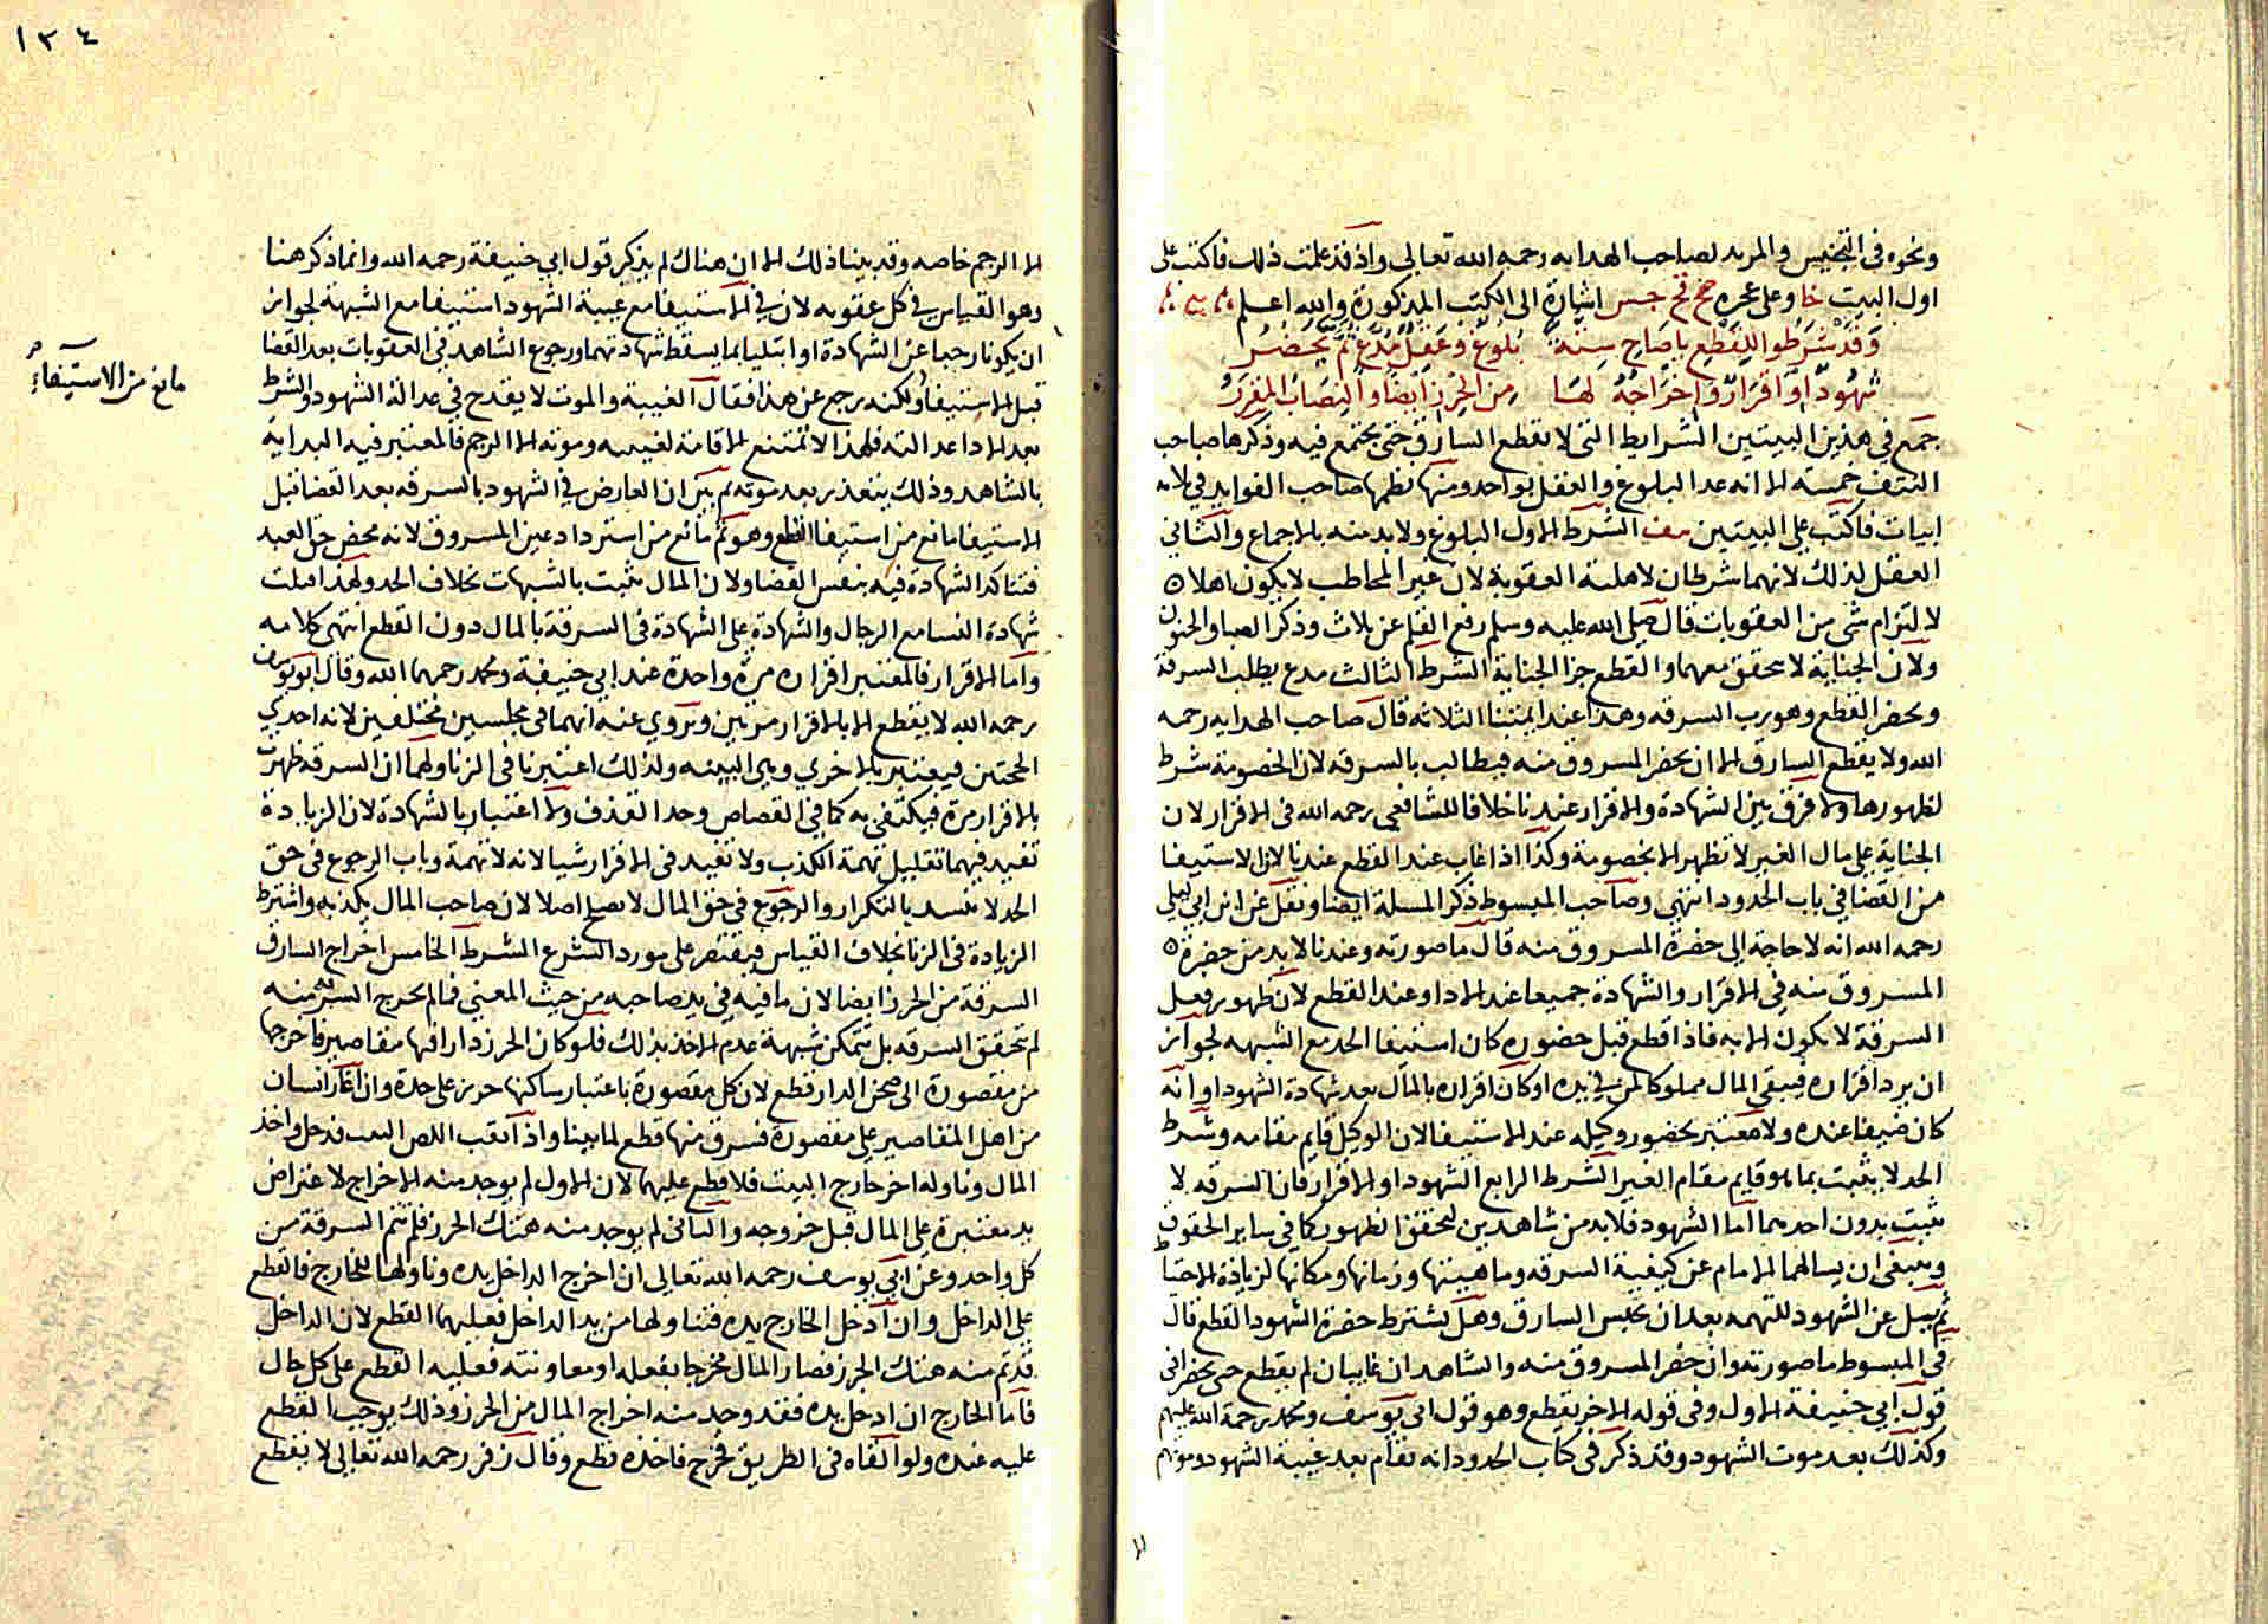 ونحوه في التجنيس والمزيد لصاحب الهدايه رحمه الله تعالى واذ قد علمت ذلك فاكتب على
اول البيت خا وعلى عجزه صح فح جس اشارة الى الكتب المذكورة والله اعلم
وَقَدْ شَرَطُوا لِلقَطعِ يا صَاحِ سِتةً بُلوغ وعَقلٌ مُدّعٍ ثم يَحضُرُ
شهودٌ او اقرارٌ واخراجُهُ لها من الحرز ايضا والنصابُ المقررُ
جمع في هذين البيتين الشرايط التي لا يقطع السارق حتى يجتمع فيه وذكرها صاحب
النتف خمسة الا انه عد البلوغ والعقل بواحد ومنها نظمها صاحب الفوايد في ثلاثه
ابيات فاكتب على البيتين الشرط الاول البلوغ ولا بد منه بالاجماع والثاني
العقل لذلك لانهما شرطان لاهلية العقوبة لان غير المخاطب لا يكون اهلا ٥
لالتزام شي من العقوبات قال صلى الله عليه وسلم رفع القلم عن ثلاث وذكر الصبا والجنون
ولان الجناية لا تتحقق معهما والقطع جزا الجناية الشرط الثالث مدع يطلب السرقة
ويحضر القطع وهو رب السرقه وهذا عند ايمتنا الثلاثه قال صاحب الهدايه رحمه
الله ولا يقطع السارق الا ان يحضر المسروق منه فيطالب بالسرقه لان الخصومة شرط
لظهورها ولا فرق بين الشهادة والاقرار عندنا خلافا للشافعي رحمه الله في الاقرار لان
الجناية على مال الغير لا تظهر الا بخصومة وكذا اذا غاب عند القطع عندنا لان الاستيفا
من القضا في باب الحدود انتهى وصاحب المبسوط ذكر المسلة ايضا ونقل عن ابن ابي ليلى
رحمه الله انه لا حاجة الى حضرة المسروق منه قال ما صورته وعندنا لا بد من حضرة ٥
المسروق منه في الاقرار والشهادة جميعا عند الادا وعند القطع لان ظهور فعل
السرقة لا يكون الا به فاذا قطع قبل حضوره كان استيفا الحد مع الشبهه لجواز
ان يرد اقراره فيبقى المال مملوكا لمن في يده او كان اقراره بالمال بعد شهادة الشهود او انه
كان ضيفا عنده ولا معتبر بحضور وكيله عند الاستيفا لان الوكيل قايم مقامه وشرط
الحد لا يثبت بما هو قايم مقام الغير الشرط الرابع الشهود او الاقرار فان السرقه لا
تثبت بدون احدهما اما الشهود فلا بد من شاهدين لتحقق الظهور كما في ساير الحقوق
وينبغي ان يسالهما الامام عن كيفية السرقه وماهيتها وزمانها ومكانها لزيادة الاحتياط
ثم يسل عن الشهود للتهمه بعد ان يحبس السارق وهل يشترط حضرة الشهود القطع قال
في المبسوط ما صورته وان حضر المسروق منه والشاهدان غايبان لم يقطع حتى يحضرا في
قول ابي حنيفة الاول وفي قوله الاخر يقطع وهو قول ابي يوسف ومحمد رحمة الله عليهم
وكذلك بعد موت الشهود وقد ذكر في كتاب الحدود انه تقام بعد غيبة الشهود وموتهم
١٣٤
الا الرجم خاصه وقد بينا ذلك الا ان هناك لم يذكر قول ابي حنيفة رحمه الله وانما ذكر هنا
وهو القياس في كل عقوبه لان في الاستيفا مع غيبة الشهود استيفا مع الشبهة لجواز
ان يكونا رجعا عن الشهادة او ابتليا بما يسقط شهادتهما ورجوع الشاهد في العقوبات بعد القضا
مانع من الاستيفاء
قبل الاستيفا ولكنه رجع عن هذا فقال الغيبة والموت لا يقدح في عدالة الشهود والشرط
بعد الادا عدالته فلهذا لا تمتنع الاقامة لغيبته وموته الا الرجم فالمعتبر فيه البداية
بالشاهد وذلك يتعذر بعد موته ثم بين ان العارض في الشهود بالسرقه بعد القضا قبل
الاستيفا مانع من استيفا القطع وهو ثم مانع من استرداد عين المسروق لانه محض حق العبد
فتتاكد الشهادة فيه بنفس القضا ولان المال يثبت بالشبهات بخلاف الحد ولهذا قبلت
شهادة النسا مع الرجال والشهادة على الشهادة في السرقة بالمال دون القطع انتهى كلامه
واما الاقرار فالمعتبر اقراره مرة واحدة عند ابي حنيفة ومحمد رحمهما الله وقال ابو يوسف
رحمه الله لا يقطع الا بالاقرار مرتين ويروي عنه انهما في مجلسين مختلفين لانه احدي
الحجتين فيعتبر بالاخري وهي البينه ولذلك اعتبرنا في الزنا ولهما ان السرقه ظهرت
بالاقرار مرة فيكتفى به كما في القصاص وحد القذف ولا اعتبار بالشهادة لان الزيادة
تفيد فيهما تقليل تهمة الكذب ولا تفيد في الاقرار شيا لانه لا تهمة وباب الرجوع في حق
الحد لا ينسد بالتكرار والرجوع في حق المال لا يصح اصلا لان صاحب المال يكذبه واشتراط
الزيادة في الزنا بخلاف القياس فيقتصر على مورد الشرع الشرط الخامس اخراج السارق
السرقة من الحرز ايضا لان ما فيه في يد صاحبه من حيث المعنى فما لم تخرج السرقه منه
لم تتحقق السرقه بل تتمكن شبهة عدم الاخذ بذلك فلو كان الحرز دارا فيها مقاصير فاخرجها
من مقصورة الى صحن الدار قطع لان كل مقصورة باعتبار ساكنها حرز على حدة وان اغار انسان
من اهل المقاصير على مقصورة فسرق منها قطع لما بينا واذا نقب اللص البيت فدخل واخذ
المال وناوله اخر خارج البيت فلا قطع عليهما لان الاول لم يوجد منه الاخراج لاعتراض
يد معتبرة على المال قبل خروجه والثاني لم يوجد منه هتك الحرز فلم تتم السرقة من
كل واحد وعن ابي يوسف رحمه الله تعالى ان اخرج الداخل يده وناولها للخارج فالقطع
على الداخل وان ادخل الخارج يده فتناولها من يد الداخل فعليهما القطع لان الداخل
قد تم منه هتك الحرز فصار المال مخرجا بفعله او معاونته فعليه القطع على كل حال
فاما الخارج ان ادخل يده فقد وجد منه اخراج المال من الحرز وذلك يوجب القطع
عليه عنده ولو القاه في الطريق فخرج فاخذه قطع وقال زفر رحمه الله تعالى لا يقطع
الا